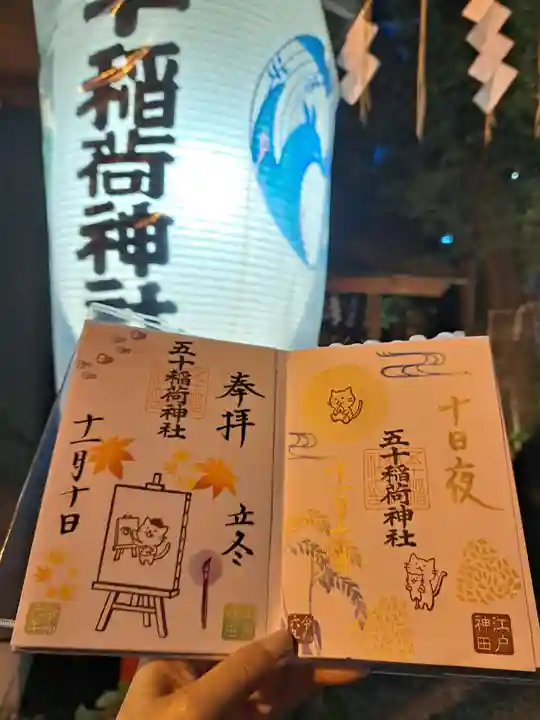 十稲荷神社
奉拝
立冬
五十稲荷神社
十一月十日
十日夜
五十稲荷神社
江戸
神田